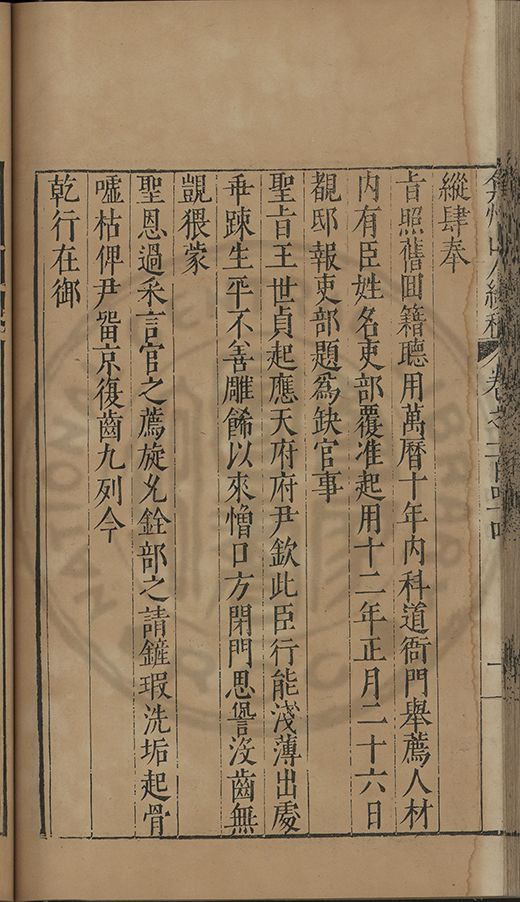 縱肆奉
旨照舊回籍聽用萬曆十年内科道衙門舉薦人材
内有臣姓名吏部覆准起用十二年正月二十六日
覩邸報吏部題爲缺官事
聖旨王世貞起應天府府尹欽此臣行能淺薄出處
乖踈生平不善雕餙以來憎口方閉門思愆没齒無
覬猥蒙
聖恩過采言官之薦旋允銓部之請鏟瑕洗垢起骨
噓枯俾尹留京復齒九列今
乾行在御